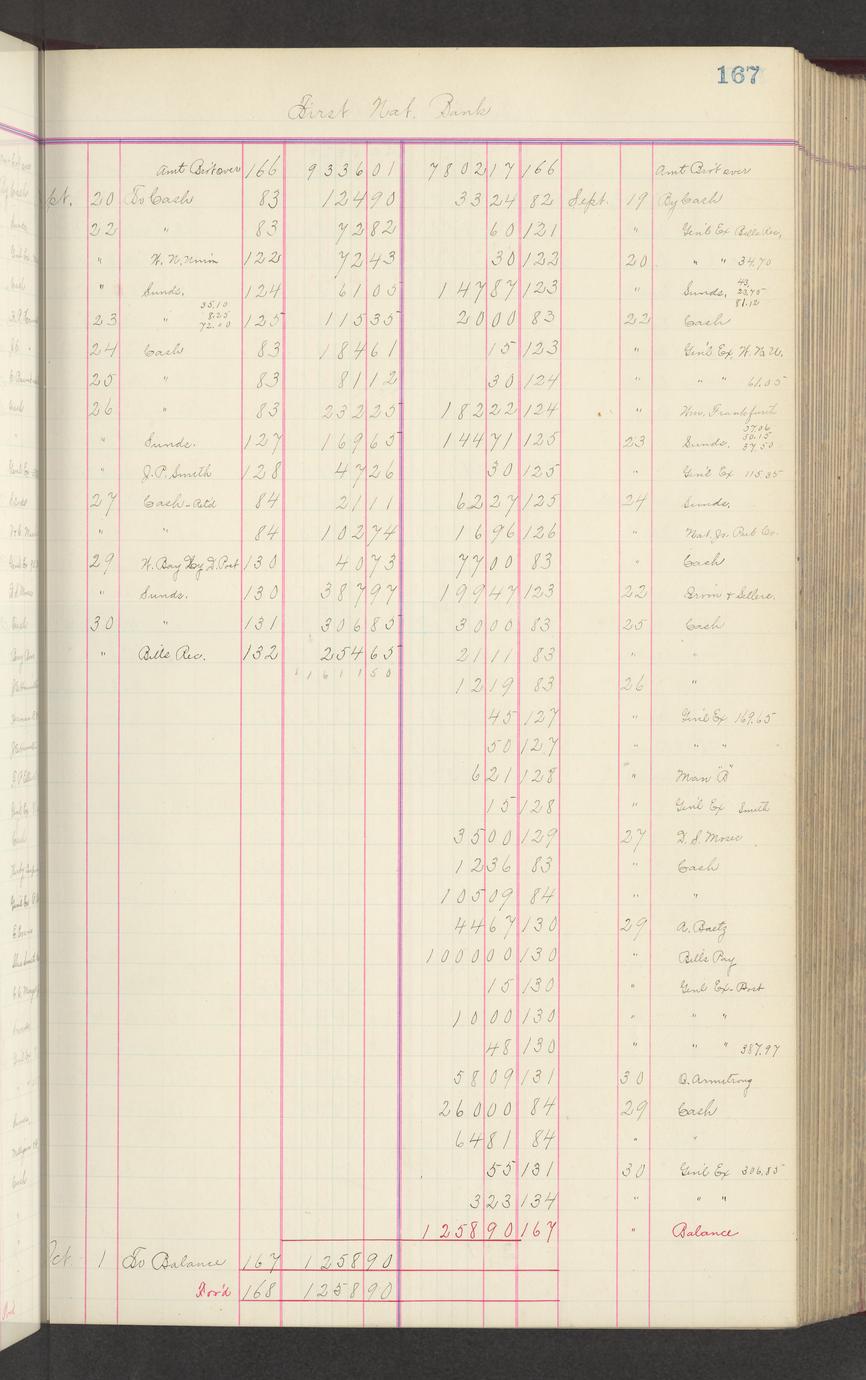 167
First Nat. Bank
Amt Bro't over 166 9336 01 7802 17 166 Amt Bro't over
pt. 20 To Cash 83 124 90 33 24 82 Sept. 19 By Cash
22 " 83 72 82 60 121 " Gen'l Ex Bills Rec,
" W. N. 122 72 43 30 122 20 " " 34.70
" Sunds. 124 61 05 147 87 123 " Sunds, 43. 23.75 81.12
23 " 35.10 8.25 72.00 125 115 35 20 00 83 22 Cash
24 Cash 83 184 61 15 123 " Gen'l Ex, W. N. U.
25 " 83 81 12 30 124 " " " 61.05
26 " 83 232 25 182 22 124 " Wm. Frankfurt
" Sunds. 127 169 65 144 71 125 23 Sunds. 57.06 50.15 37.50
" J. P. Smith 128 47 26 30 125 " Gen'l Ex 115.35
27 Cash-Retd 84 21 11 62 27 125 24 Sunds.
" " 84 102 74 16 96 126 " Nat. Jr. Pub Co.
29 W. Bay Hy D. Port 130 40 73 77 00 83 " Cash
" Sunds. 130 387 97 199 47 123 22 Ervin & Sellers.
30 " 131 306 85 30 00 83 25 Cash
" Bills Rec. 132 254 65 21 11 83 " "
11611 50
12 19 83 26 "
45 127 " Gen'l Ex 169.65
50 127 " " "
6 21 128 " Man "B"
15 128 " Gen'l Ex Smith
35 00 129 27 D. S. Moses
12 36 83 " Cash
105 09 84 " "
44 67 130 29 A. Baetz
1000 00 130 " Bills Pay
15 130 " Gen'l Ex-Port
10 00 130 " " "
48 130 " " " 387.97
58 09 131 30 B. Armstrong
260 00 84 29 Cash
64 81 84 " "
55 131 30 Gen'l Ex 306.85
3 23 134 " " "
1258 90 167 " Balance
Oct. 1 To Balance 167 1258 90
For'd 168 1258 90